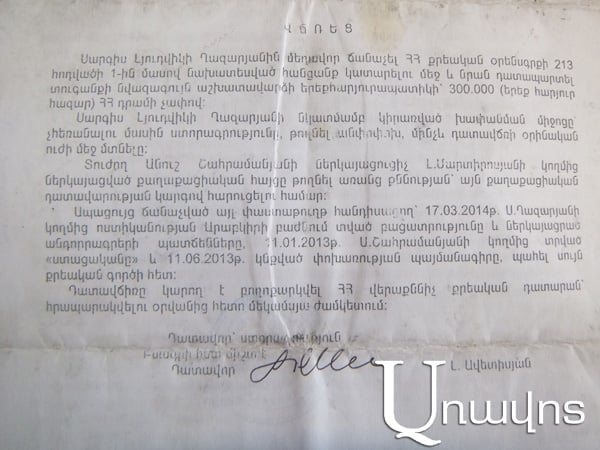 ՎՃՌԵՑ
Սարգիս Լյուդվիկի Ղազարյանին մեղավոր ճանաչել ՀՀ քրեական օրենսգրքի 213
հոդվածի 1-ին մասով նախատեսված հանցանք կատարելու մեջ և նրան դատապարտել
տուգանքի նվազագույն աշխատավարձի երեքհարյուրապատիկի՝ 300.000 (երեք հարյուր
հազար) ՀՀ դրամի չափով:
Սարգիս Լյուդվիկի Ղազարյանի նկատմամբ կիրառված խափանման միջոցը՝
չհեռանալու մասին ստորագրությունը, թողնել անփոփոխ, մինչև դատավճռի օրինական
ուժի մեջ մտնելը:
Տուժող Անուշ Շահրամանյանի ներկայացուցիչ Լ.Մարտիրոսյանի կողմից
ներկայացված քաղաքացիական հայցը թողնել առանց քննության՝ այն քաղաքացիական
դատավարության կարգով հարուցելու համար:
Ապացույց ճանաչված այլ փաստաթուղթ հանդիսացող՝ 17.03.2014թ. Ս.Ղազարյանի
կողմից ոստիկանության Արաբկիրի բաժնում տված բացատրությունը և ներկայացրած
անդորրագրերի պատճենները, 11.01.2013թ. Ա.Շահրամանյանի կողմից տրված
«ստացականը» և 11.06.2013թ. կնքված փոխառության պայմանագիրը, պահել սույն
քրեական գործի հետ:
Դատավճիռը կարող է բողոքարկվել ՀՀ վերաքննիչ քրեական դատարան՝
հրապարակվելու օրվանից հետո մեկամսյա ժամկետում:
Դատավոր՝ ստորագրություն
Բնագրի հետ ճիշտ է
Դատավոր Լ. Ավետիսյան
Առավոտ